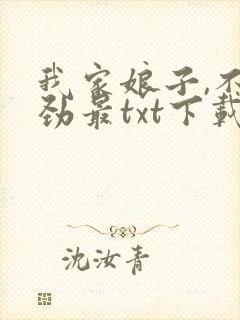 我家娘子,不
劲最txt下载
沈汝青